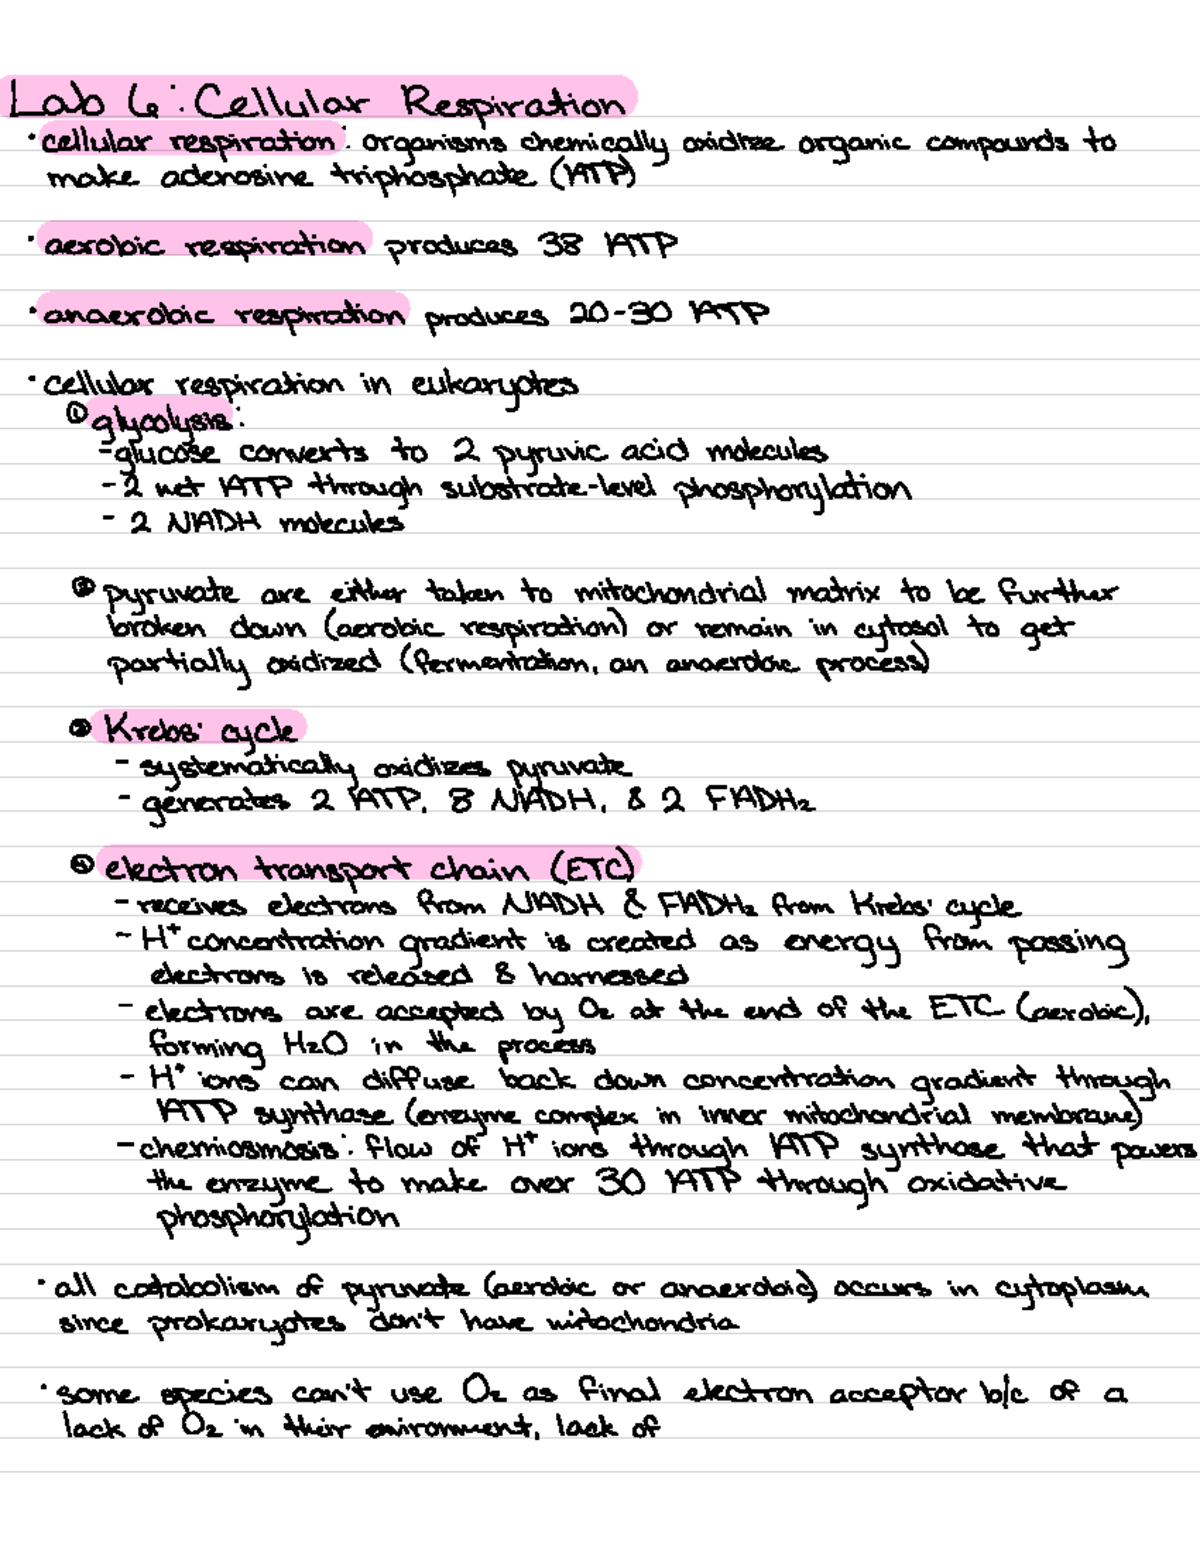 Lab 6: Cellular Respiration
· cellular respiration: organisms chemically oxidize organic compounds to
make adenosine triphosphate (ATP)
· aerobic respiration produces 38 ATP
· anaerobic respiration produces 20-30 ATP
· cellular respiration in eukaryotes
① glycolysis:
- glucose converts to 2 pyruvic acid molecules
- 2 net ATP through substrate-level phosphorylation
- 2 NADH molecules
② pyruvate are either taken to mitochondrial matrix to be further
broken down (aerobic respiration) or remain in cytosol to get
partially oxidized (fermentation, an anaerobic process)
③ Krebs' cycle
- systematically oxidizes pyruvate
- generates 2 ATP, 8 NADH, & 2 FADH₂
④ electron transport chain (ETC)
- receives electrons from NADH & FADH₂ from Krebs' cycle
- H⁺ concentration gradient is created as energy from passing
electrons is released & harnessed
- electrons are accepted by O₂ at the end of the ETC (aerobic),
forming H₂O in the process
- H⁺ ions can diffuse back down concentration gradient through
ATP synthase (enzyme complex in inner mitochondrial membrane)
- chemiosmosis: flow of H⁺ ions through ATP synthase that powers
the enzyme to make over 30 ATP through oxidative
phosphorylation
· all catabolism of pyruvate (aerobic or anaerobic) occurs in cytoplasm
since prokaryotes don't have mitochondria
· some species can't use O₂ as final electron acceptor b/c of a
lack of O₂ in their environment, lack of